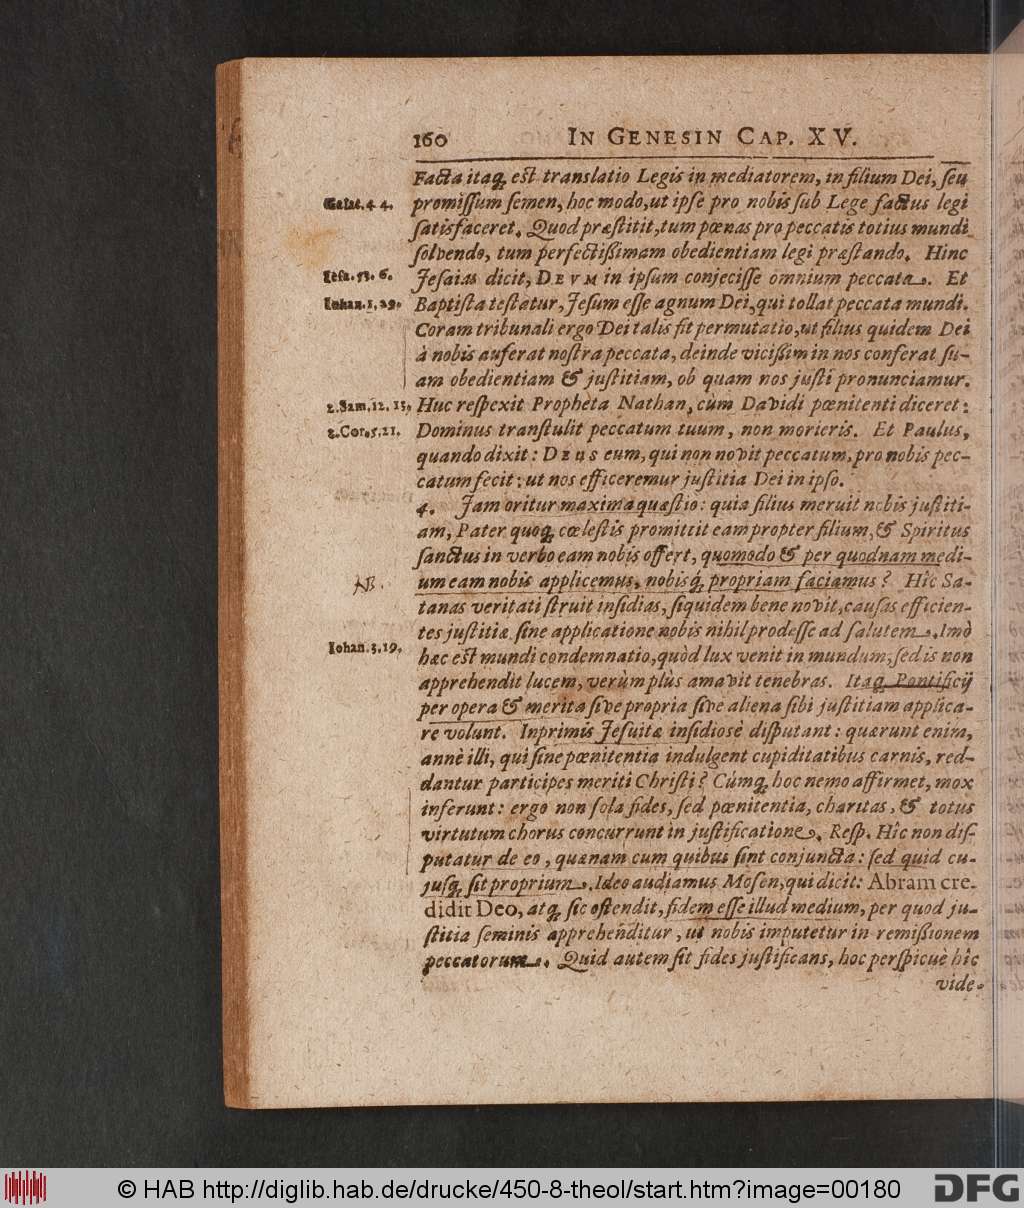 160 IN GENESIN CAP. XV.
Facta itaq́; est translatio Legis in mediatorem, in filium Dei, ſeu
Galat. 4 4. promiſſum ſemen, hoc modo, ut ipſe pro nobis ſub Lege factus legi
ſatisfaceret. Quod præſtitit, tum pœnas pro peccatis totius mundi
ſolvendo, tum perfectißimam obedientiam legi præſtando. Hinc
Ieſa. 53. 6. Jeſaias dicit, DEVM in ipſum conjeciſſe omnium peccata. Et
Iohan. 1, 29. Baptiſta teſtatur, Jeſum eſſe agnum Dei, qui tollat peccata mundi.
Coram tribunali ergo Dei talis fit permutatio, ut filius quidem Dei
à nobis auferat noſtra peccata, deinde vicißim in nos conferat ſu-
am obedientiam & juſtitiam, ob quam nos juſti pronunciamur.
2. Sam. 12. 13. Huc reſpexit Propheta Nathan, cùm Davidi pœnitenti diceret:
2. Cor. 5, 21. Dominus tranſtulit peccatum tuum, non morieris. Et Paulus,
quando dixit: DEUS eum, qui non novit peccatum, pro nobis pec-
catum fecit: ut nos efficeremur juſtitia Dei in ipſo.
4. Jam oritur maxima quæſtio: quia filius meruit nobis juſtiti-
am, Pater quoq́; cœleſtis promittit eam propter filium, & Spiritus
ſanctus in verbo eam nobis offert, quomodo & per quodnam medi-
NB. um eam nobis applicemus, nobisq́; propriam faciamus? Hîc Sa-
tanas veritati ſtruit inſidias, ſiquidem bene novit, cauſas efficien-
tes juſtitiæ ſine applicatione nobis nihil prodeſſe ad ſalutem. Imò
Iohan. 3, 19. hæc est mundi condemnatio, quòd lux venit in mundum, ſed is non
apprehendit lucem, verùm plùs amavit tenebras. Itaq́; Pontificij
per opera & merita ſive propria ſive aliena ſibi juſtitiam applica-
re volunt. Inprimis Jeſuitæ inſidiosè diſputant: quærunt enim,
annè illi, qui ſine pœnitentia indulgent cupiditatibus carnis, red-
dantur participes meriti Chriſti? Cúmq́; hoc nemo affirmet, mox
inferunt: ergo non ſola fides, ſed pœnitentia, charitas, & totus
virtutum chorus concurrunt in juſtificatione. Reſp. Hîc non diſ-
putatur de eo, quænam cum quibus ſint conjuncta: ſed quid cu-
juſq́; ſit proprium. Ideo audiamus Moſen, qui dicit: Abram cre-
didit Deo, atq́; ſic oſtendit, fidem eſſe illud medium, per quod ju-
ſtitia ſeminis apprehenditur, ut nobis imputetur in remißionem
peccatorum. Quid autem ſit fides juſtificans, hoc perſpicuè hîc
vide-
© HAB http://diglib.hab.de/drucke/450-8-theol/start.htm?image=00180 DFG